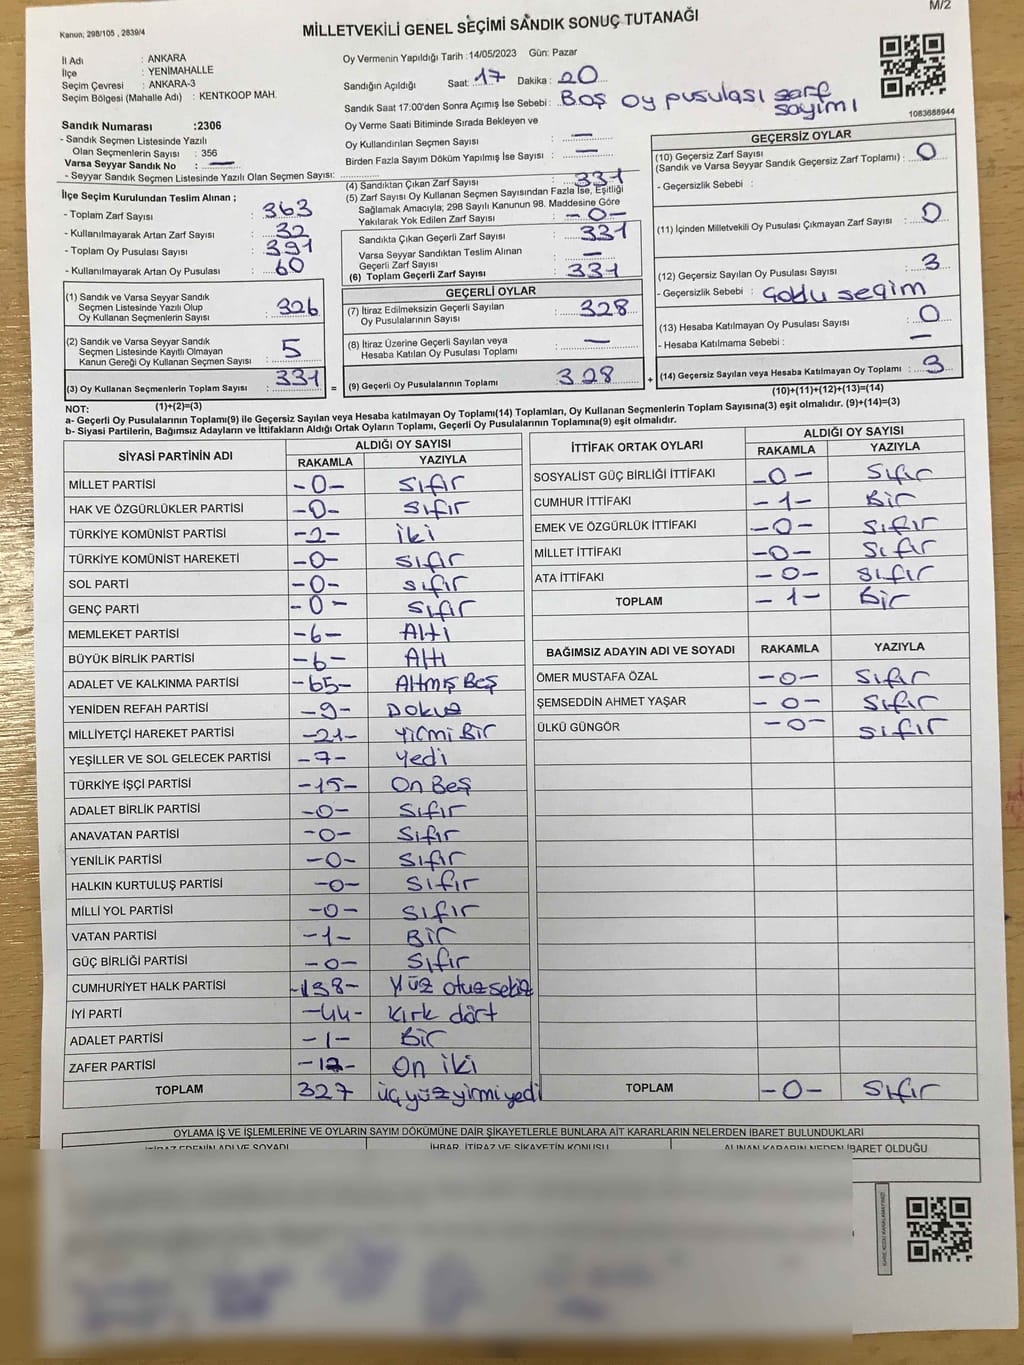 M/2
Kanun; 298/105 , 2839/4
MİLLETVEKİLİ GENEL SEÇİMİ SANDIK SONUÇ TUTANAĞI
İl Adı : ANKARA
İlçe : YENİMAHALLE
Seçim Çevresi : ANKARA-3
Seçim Bölgesi (Mahalle Adı) : KENTKOOP MAH.
Oy Vermenin Yapıldığı Tarih :14/05/2023 Gün: Pazar
Sandığın Açıldığı Saat: 17 Dakika : 20
Sandık Saat 17:00'den Sonra Açımış İse Sebebi : Boş oy pusulası zarf sayımı
1083688944
Sandık Numarası :2306
- Sandık Seçmen Listesinde Yazılı
Olan Seçmenlerin Sayısı : 356
Varsa Seyyar Sandık No : —
- Seyyar Sandık Seçmen Listesinde Yazılı Olan Seçmen Sayısı:
Oy Verme Saati Bitiminde Sırada Bekleyen ve
Oy Kullandırılan Seçmen Sayısı : —
Birden Fazla Sayım Döküm Yapılmış İse Sayısı : —
İlçe Seçim Kurulundan Teslim Alınan ;
- Toplam Zarf Sayısı : 363
- Kullanılmayarak Artan Zarf Sayısı : 32
- Toplam Oy Pusulası Sayısı : 391
- Kullanılmayarak Artan Oy Pusulası : 60
(1) Sandık ve Varsa Seyyar Sandık
Seçmen Listesinde Yazılı Olup
Oy Kullanan Seçmenlerin Sayısı : 326
(2) Sandık ve Varsa Seyyar Sandık
Seçmen Listesinde Kayıtlı Olmayan
Kanun Gereği Oy Kullanan Seçmen Sayısı : 5
(3) Oy Kullanan Seçmenlerin Toplam Sayısı : 331
(1)+(2)=(3)
(4) Sandıktan Çıkan Zarf Sayısı : 331
(5) Zarf Sayısı Oy Kullanan Seçmen Sayısından Fazla İse, Eşitliği
Sağlamak Amacıyla; 298 Sayılı Kanunun 98. Maddesine Göre
Yakılarak Yok Edilen Zarf Sayısı : -0-
Sandıkta Çıkan Geçerli Zarf Sayısı : 331
Varsa Seyyar Sandıktan Teslim Alınan
Geçerli Zarf Sayısı : —
(6) Toplam Geçerli Zarf Sayısı : 331
GEÇERLİ OYLAR
(7) İtiraz Edilmeksizin Geçerli Sayılan
Oy Pusulalarının Sayısı : 328
(8) İtiraz Üzerine Geçerli Sayılan veya
Hesaba Katılan Oy Pusulası Toplamı : —
= (9) Geçerli Oy Pusulalarının Toplamı : 328
GEÇERSİZ OYLAR
(10) Geçersiz Zarf Sayısı
(Sandık ve Varsa Seyyar Sandık Geçersiz Zarf Toplamı) : 0
- Geçersizlik Sebebi :
(11) İçinden Milletvekili Oy Pusulası Çıkmayan Zarf Sayısı : 0
(12) Geçersiz Sayılan Oy Pusulası Sayısı : 3
- Geçersizlik Sebebi : Çoklu seçim
(13) Hesaba Katılmayan Oy Pusulası Sayısı : 0
- Hesaba Katılmama Sebebi : —
+ (14) Geçersiz Sayılan veya Hesaba Katılmayan Oy Toplamı : 3
(10)+(11)+(12)+(13)=(14)
NOT:
a- Geçerli Oy Pusulalarının Toplamı(9) ile Geçersiz Sayılan veya Hesaba katılmayan Oy Toplamı(14) Toplamları, Oy Kullanan Seçmenlerin Toplam Sayısına(3) eşit olmalıdır. (9)+(14)=(3)
b- Siyasi Partilerin, Bağımsız Adayların ve İttifakların Aldığı Ortak Oyların Toplamı, Geçerli Oy Pusulalarının Toplamına(9) eşit olmalıdır.
SİYASİ PARTİNİN ADI ALDIĞI OY SAYISI
RAKAMLA YAZIYLA
MİLLET PARTİSİ -0- Sıfır
HAK VE ÖZGÜRLÜKLER PARTİSİ -0- Sıfır
TÜRKİYE KOMÜNİST PARTİSİ -2- iki
TÜRKİYE KOMÜNİST HAREKETİ -0- Sıfır
SOL PARTİ -0- sıfır
GENÇ PARTİ -0- Sıfır
MEMLEKET PARTİSİ -6- Altı
BÜYÜK BİRLİK PARTİSİ -6- Altı
ADALET VE KALKINMA PARTİSİ -65- Altmış Beş
YENİDEN REFAH PARTİSİ -9- Dokuz
MİLLİYETÇİ HAREKET PARTİSİ -21- Yirmi Bir
YEŞİLLER VE SOL GELECEK PARTİSİ -7- Yedi
TÜRKİYE İŞÇİ PARTİSİ -15- On Beş
ADALET BİRLİK PARTİSİ -0- Sıfır
ANAVATAN PARTİSİ -0- Sıfır
YENİLİK PARTİSİ -0- Sıfır
HALKIN KURTULUŞ PARTİSİ -0- Sıfır
MİLLİ YOL PARTİSİ -0- Sıfır
VATAN PARTİSİ -1- Bir
GÜÇ BİRLİĞİ PARTİSİ -0- Sıfır
CUMHURİYET HALK PARTİSİ -138- Yüz otuz sekiz
İYİ PARTİ -44- Kırk dört
ADALET PARTİSİ -1- Bir
ZAFER PARTİSİ -12- On iki
TOPLAM 327 üç yüz yirmi yedi
İTTİFAK ORTAK OYLARI ALDIĞI OY SAYISI
RAKAMLA YAZIYLA
SOSYALİST GÜÇ BİRLİĞİ İTTİFAKI -0- Sıfır
CUMHUR İTTİFAKI -1- Bir
EMEK VE ÖZGÜRLÜK İTTİFAKI -0- Sıfır
MİLLET İTTİFAKI -0- Sıfır
ATA İTTİFAKI -0- Sıfır
TOPLAM -1- Bir
BAĞIMSIZ ADAYIN ADI VE SOYADI RAKAMLA YAZIYLA
ÖMER MUSTAFA ÖZAL -0- Sıfır
ŞEMSEDDİN AHMET YAŞAR -0- Sıfır
ÜLKÜ GÜNGÖR -0- sıfır
TOPLAM -0- Sıfır
OYLAMA İŞ VE İŞLEMLERİNE VE OYLARIN SAYIM DÖKÜMÜNE DAİR ŞİKAYETLERLE BUNLARA AİT KARARLARIN NELERDEN İBARET BULUNDUKLARI
İTİRAZ EDENİN ADI VE SOYADI İHBAR, İTİRAZ VE ŞİKAYETİN KONUSU ALINAN KARARIN NEDEN İBARET OLDUĞU